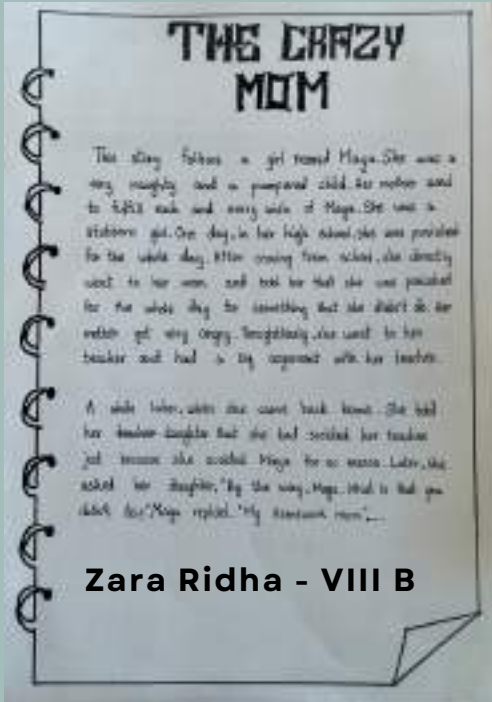 THE CRAZY
MOM
This story follows a girl named Maya. She was a
very naughty and a pampered child. Her mother used
to fulfill each and every wish of Maya. She was a
stubborn girl. One day, in her high school, she was punished
for the whole day. After coming from school, she directly
went to her mom and told her that she was punished
for the whole day for something that she didn't do. Her
mother got very angry. Thoughtlessly, she went to her
teacher and had a big argument with her teacher.
A while later, when she came back home. She told
her teacher daughter that she had scolded her teacher
just because she scolded Maya for no reason. Later, she
asked her daughter, "By the way, Maya. What is that you
didn't do?" Maya replied. "My homework mom"...
Zara Ridha - VIII B